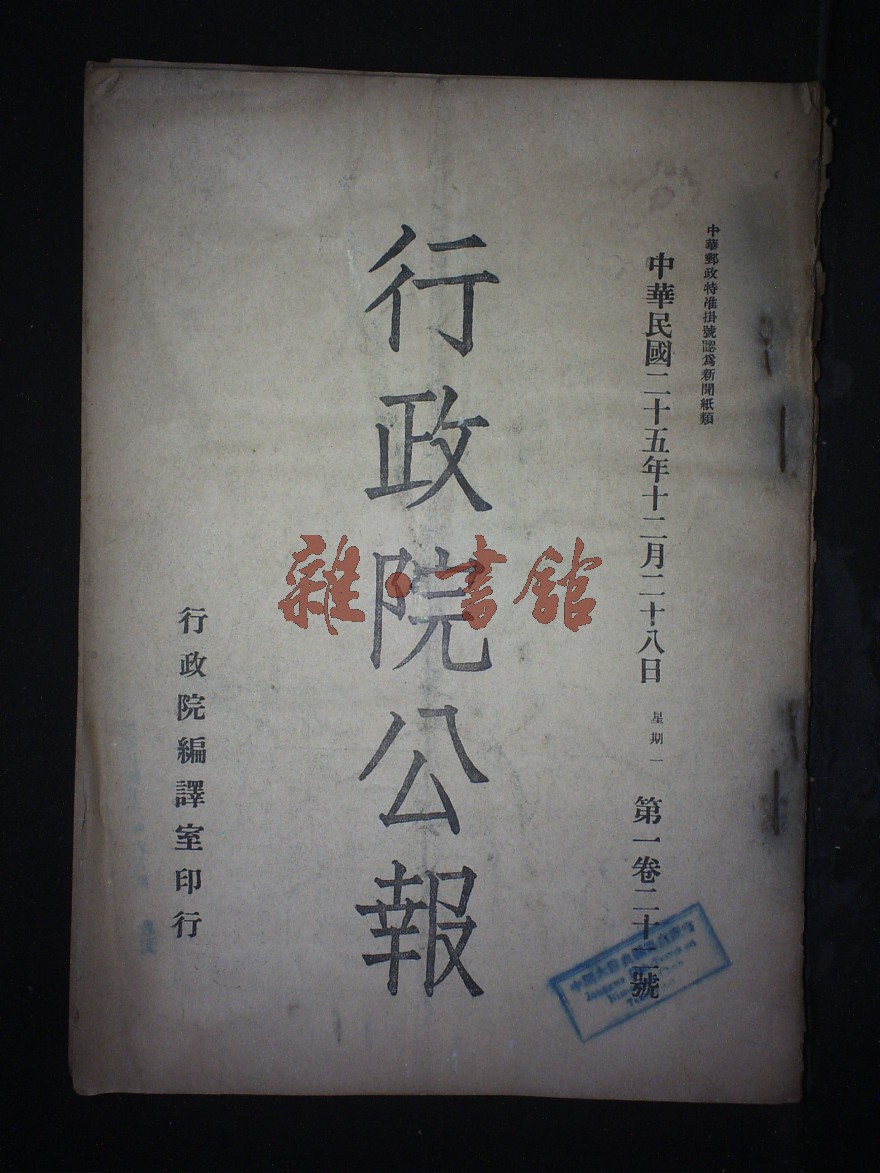 中華郵政特准掛號認爲新聞紙類
中華民國二十五年十二月二十八日 星期一 第一卷二十二號
行政院公報
行政院編譯室印行
雜·書館